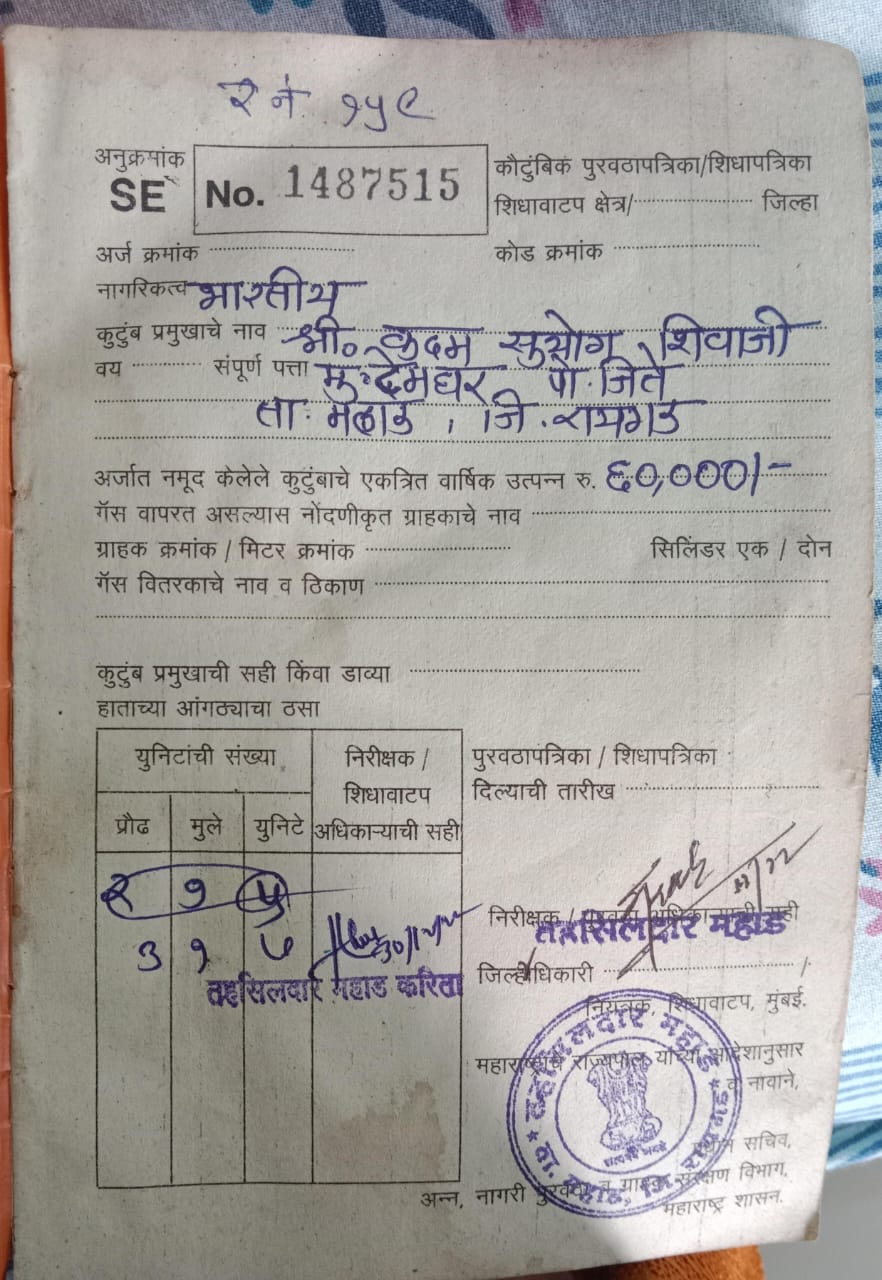 र नं. १५९
अनुक्रमांक
SE No. 1487515
कौटुंबिक पुरवठापत्रिका/शिधापत्रिका
शिधावाटप क्षेत्र/ जिल्हा
अर्ज क्रमांक कोड क्रमांक
नागरिकत्व भारतीय
कुटुंब प्रमुखाचे नाव श्री. कदम सुयोग शिवाजी
वय संपूर्ण पत्ता मु. देमघर पो. जिते
ता. महाड, जि. रायगड
अर्जात नमूद केलेले कुटुंबाचे एकत्रित वार्षिक उत्पन्न रु. ६०,०००/-
गॅस वापरत असल्यास नोंदणीकृत ग्राहकाचे नाव
ग्राहक क्रमांक / मिटर क्रमांक सिलिंडर एक / दोन
गॅस वितरकाचे नाव व ठिकाण
कुटुंब प्रमुखाची सही किंवा डाव्या
हाताच्या आंगठ्याचा ठसा
युनिटांची संख्या
निरीक्षक /
शिधावाटप
अधिकाऱ्याची सही
प्रौढ मुले युनिटे
२ १ ५
३ १ ७
तहसिलदार महाड करिता
पुरवठापत्रिका / शिधापत्रिका
दिल्याची तारीख
निरीक्षक / पुरवठा अधिकाऱ्याची सही
तहसिलदार महाड
जिल्हाधिकारी /
नियंत्रक, शिधावाटप, मुंबई.
महाराष्ट्राचे राज्यपाल यांच्या आदेशानुसार
व नावाने,
सचिव,
अन्न, नागरी पुरवठा व ग्राहक संरक्षण विभाग,
महाराष्ट्र शासन.
तहसिलदार महाड
ता. महाड, जि. रायगड